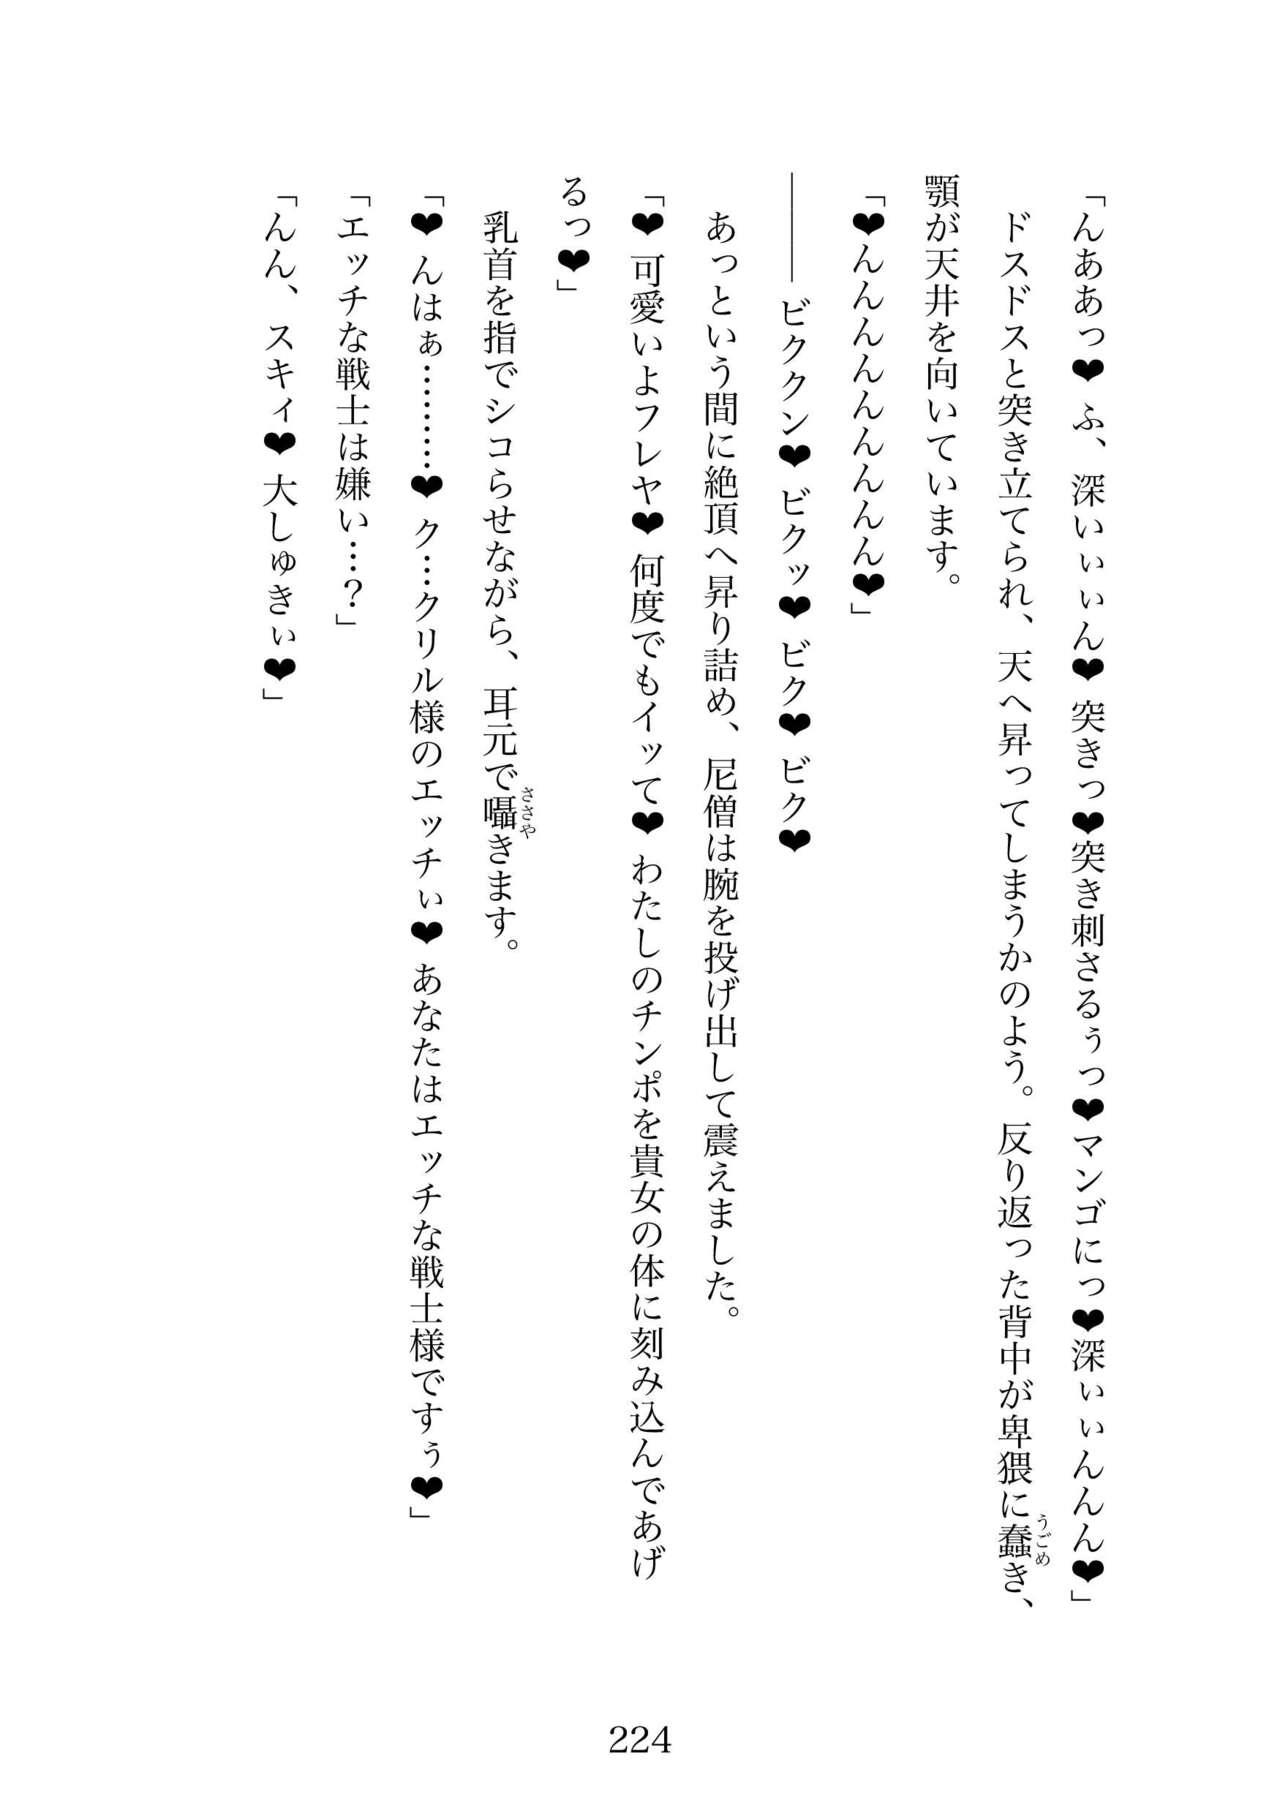 「んああっ❤ ふ、深いぃぃん❤ 突きっ❤突き刺さるぅっ❤マンゴにっ❤深ぃぃんんん❤」
ドスドスと突き立てられ、天へ昇ってしまうかのよう。反り返った背中が卑猥に蠢き、
うごめ
顎が天井を向いています。
「❤んんんんんんんんん❤」
――― ビククン❤ ビクッ❤ ビク❤ ビク❤
あっという間に絶頂へ昇り詰め、尼僧は腕を投げ出して震えました。
「❤ 可愛いよフレヤ❤ 何度でもイッて❤ わたしのチンポを貴女の体に刻み込んであげ
るっ❤」
乳首を指でシコらせながら、耳元で囁きます。
ささや
「❤ んはぁ………❤ ク…クリル様のエッチぃ❤ あなたはエッチな戦士様ですぅ❤」
「エッチな戦士は嫌い…？」
「んん、スキィ❤ 大しゅきぃ❤」
224